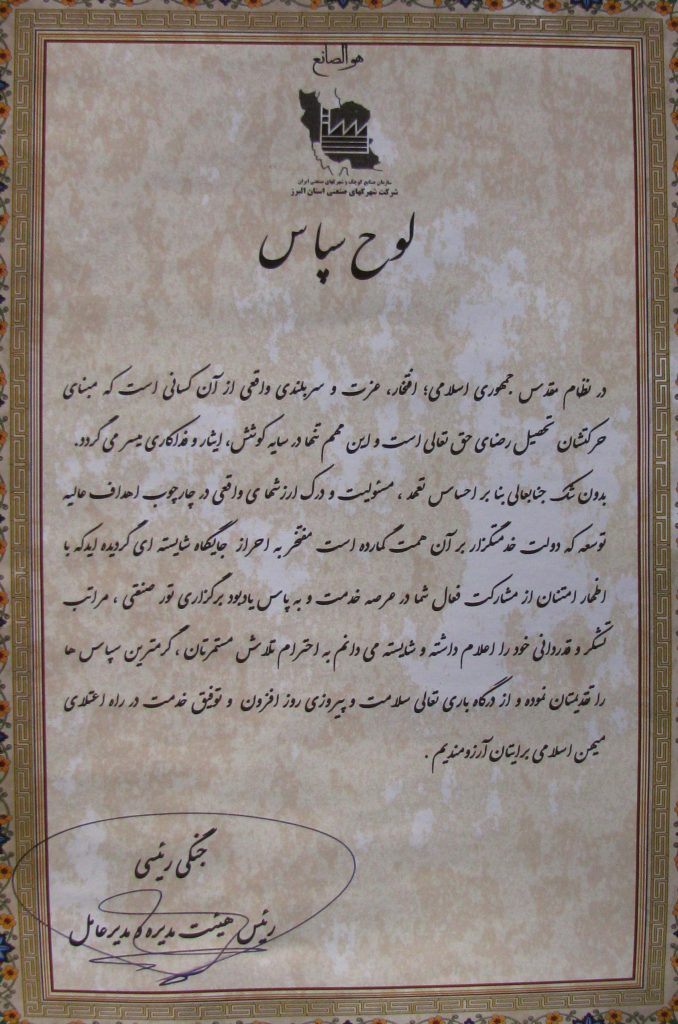 هو الصانع
سازمان صنایع کوچک و شهرکهای صنعتی ایران
شرکت شهرکهای صنعتی استان البرز
لوح سپاس
در نظام مقدس جمهوری اسلامی؛ افتخار، عزت و سربلندی واقعی از آن کسانی است که مبنای
حرکتشان تحصیل رضای حق تعالی است و این مهم تنها در سایه کوشش، ایثار و فداکاری میسر می گردد.
بدون شک جنابعالی بنا بر احساس تعهد ، مسئولیت و درک ارزشهای واقعی در چارچوب اهداف عالیه
توسعه که دولت خدمتگزار بر آن همت گمارده است مفتخر به احراز جایگاه شایسته ای گردیده ایدکه با
اظهار امتنان از مشارکت فعال شما در عرصه خدمت و به پاس یادبود برگزاری تور صنعتی ، مراتب
تشکر و قدردانی خود را اعلام داشته و شایسته می دانم به احترام تلاش مستمرتان ، گرمترین سپاس ها
را تقدیمتان نموده و از درگاه باری تعالی سلامت و پیروزی روز افزون و توفیق خدمت در راه اعتلای
میهن اسلامی برایتان آرزومندیم .
جنگی رئیسی
رئیس هیئت مدیره و مدیرعامل